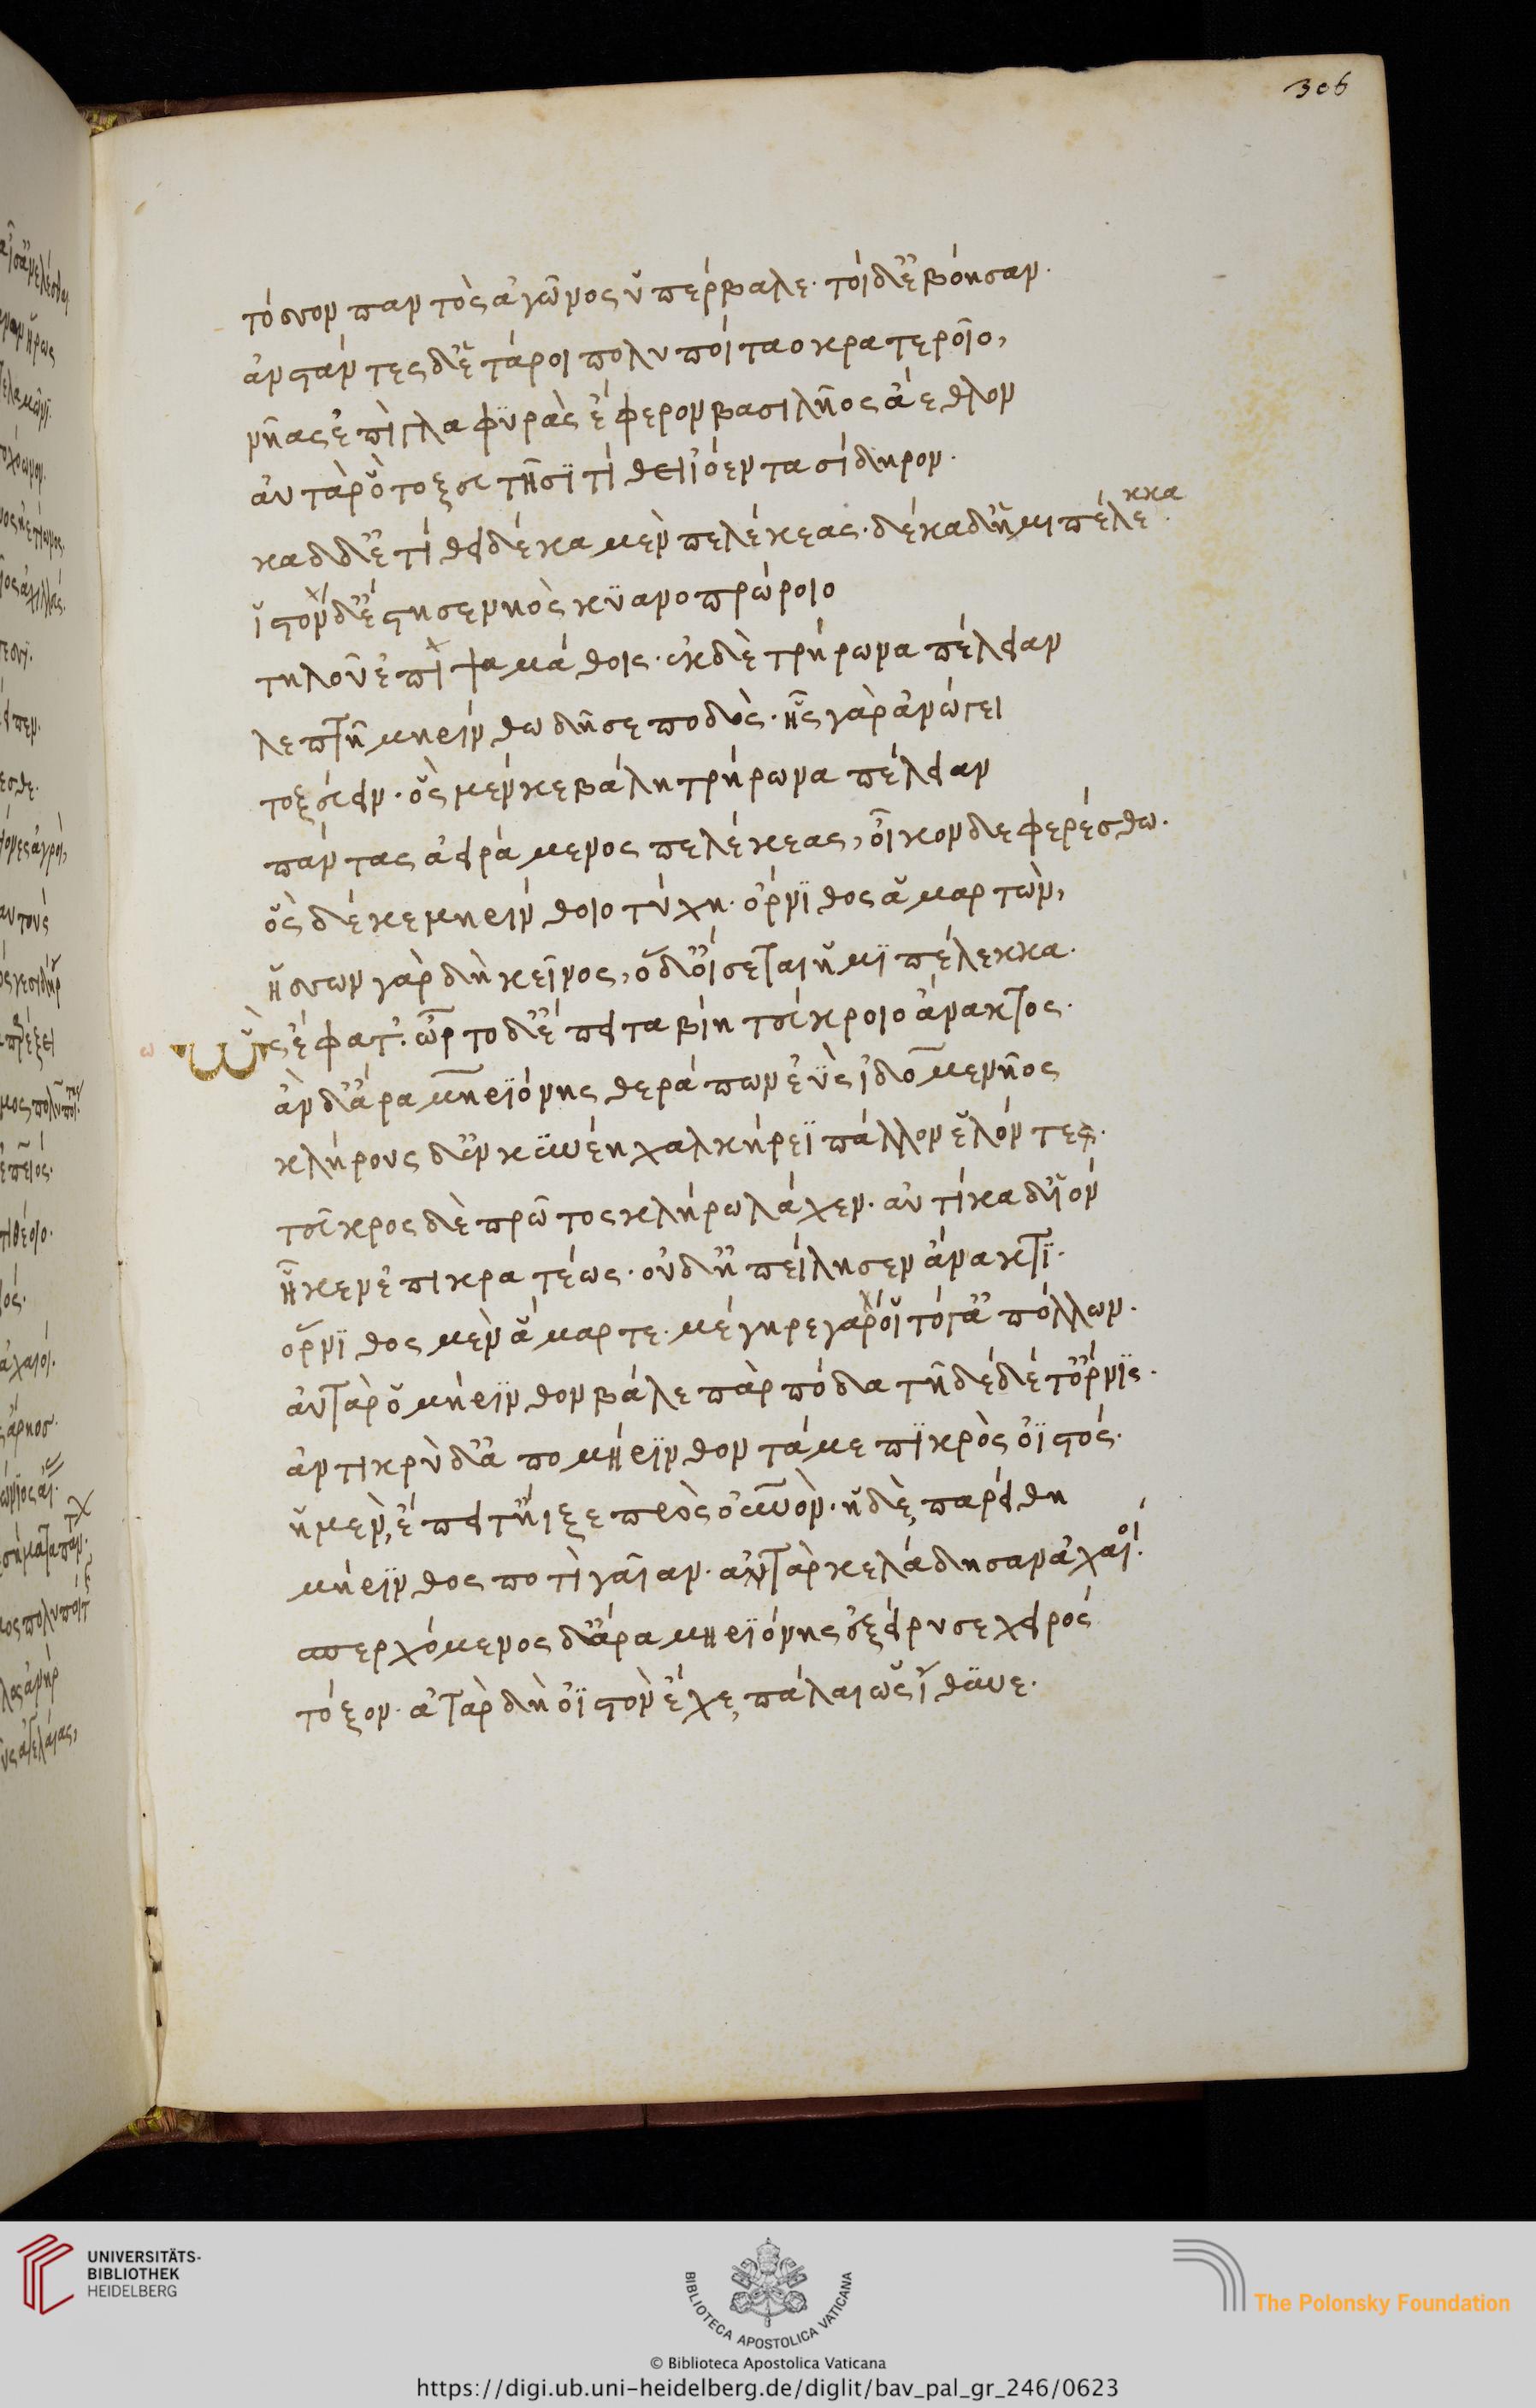 τόσσον παντὸς ἀγῶνος ὑπέρβαλε· τοὶ δ' ἐβόησαν·
ἀνστάντες δ' ἕταροι πολυποίταο κρατεροῖο,
νῆας ἐπὶ γλαφϋρὰς ἔφερον βασιλῆος ἄεθλον
αὐτὰρ ὃ τοξευτῆσϊ τίθει ἰόεντα σίδηρον·
καδδ' ἐτίθει δέκα μὲν πελέκεας· δέκα δ' ἡμιπέλεκκα·
ἱστὸν δ' ἔστησεν νηὸς κϋανοπρώροιο
τηλοῦ ἐπὶ ψαμάθοις· ἐκ δὲ τρήρωνα πέλειαν
λεπτῆ μηρίνθω δῆσε ποδὸς· ἧς γὰρ ἀνώγει
τοξεύειν· ὃς μέν κε βάλη τρήρωνα πέλειαν
πάντας ἀειράμενος πελέκεας, οἶκον δὲ φερέσθω·
ὃς δέ κε μηρίνθοιο τύχη· ὄρνϊθος ἁμαρτὼν,
ἥσσων γὰρ δὴ κεῖνος, ὃ δ' οἴσεται ἡμϊπέλεκκα·
Ὣς ἔφατ'· ὦρτο δ' ἔπειτα βίη τεύκροιο ἄνακτος·
ἂν δ' ἄρα μηρϊόνης θεράπων ἐΰς ἰδομενῆος
κλήρους δ' ἐν κϋνέη χαλκήρεϊ πάλλον ἑλόντες·
τεῦκρος δὲ πρῶτος κλήρω λάχεν· αὐτίκα δ' ἰὸν
ἧκεν ἐπικρατέως· οὐδ' ἠπείλησεν ἄνακτϊ·
ὄρνϊθος μὲν ἅμαρτε· μέγηρε γάρ οἱ τό γ' ἀπόλλων·
αὐτὰρ ὃ μήρϊνθον βάλε πὰρ πόδα τῆ δέδετ' ὄρνϊς·
ἀντικρὺ δ' ἀπο μήρϊνθον τάμε πϊκρὸς ὀϊστός·
ἡ μὲν, ἔπειτ' ἤιξε πρὸς οὐρανὸν· ἡ δὲ παρείθη
μήρϊνθος ποτὶ γαῖαν· αὐτὰρ κελάδησαν ἀχαιοί·
σπερχόμενος δ' ἄρα μηρϊόνης ἐξείρυσε χειρὸς
τόξον· ἀτὰρ δὴ ὀϊστὸν ἔχε πάλαι ὡς ἴθϋνε·
306
UNIVERSITÄTS-
BIBLIOTHEK
HEIDELBERG
BIBLIOTECA APOSTOLICA VATICANA
The Polonsky Foundation
© Biblioteca Apostolica Vaticana
https://digi.ub.uni-heidelberg.de/diglit/bav_pal_gr_246/0623